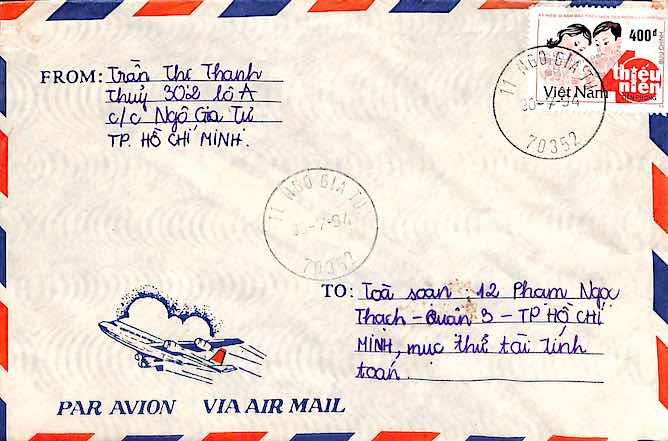 400đ
BƯU CHÍNH
thiếu
niên
Việt Nam
11 NGÔ GIA TỰ
30-7-94
70352
FROM: Trần Thị Thanh
Thuỷ 302 lô A
c/c Ngô Gia Tự
TP. HỒ CHÍ MINH.
11 NGÔ GIA TỰ
30-7-94
70352
TO: Toà soạn : 12 Phạm Ngọc
Thạch - Quận 3 - TP HỒ CHÍ
MINH, mục thử tài tính
toán.
PAR AVION VIA AIR MAIL